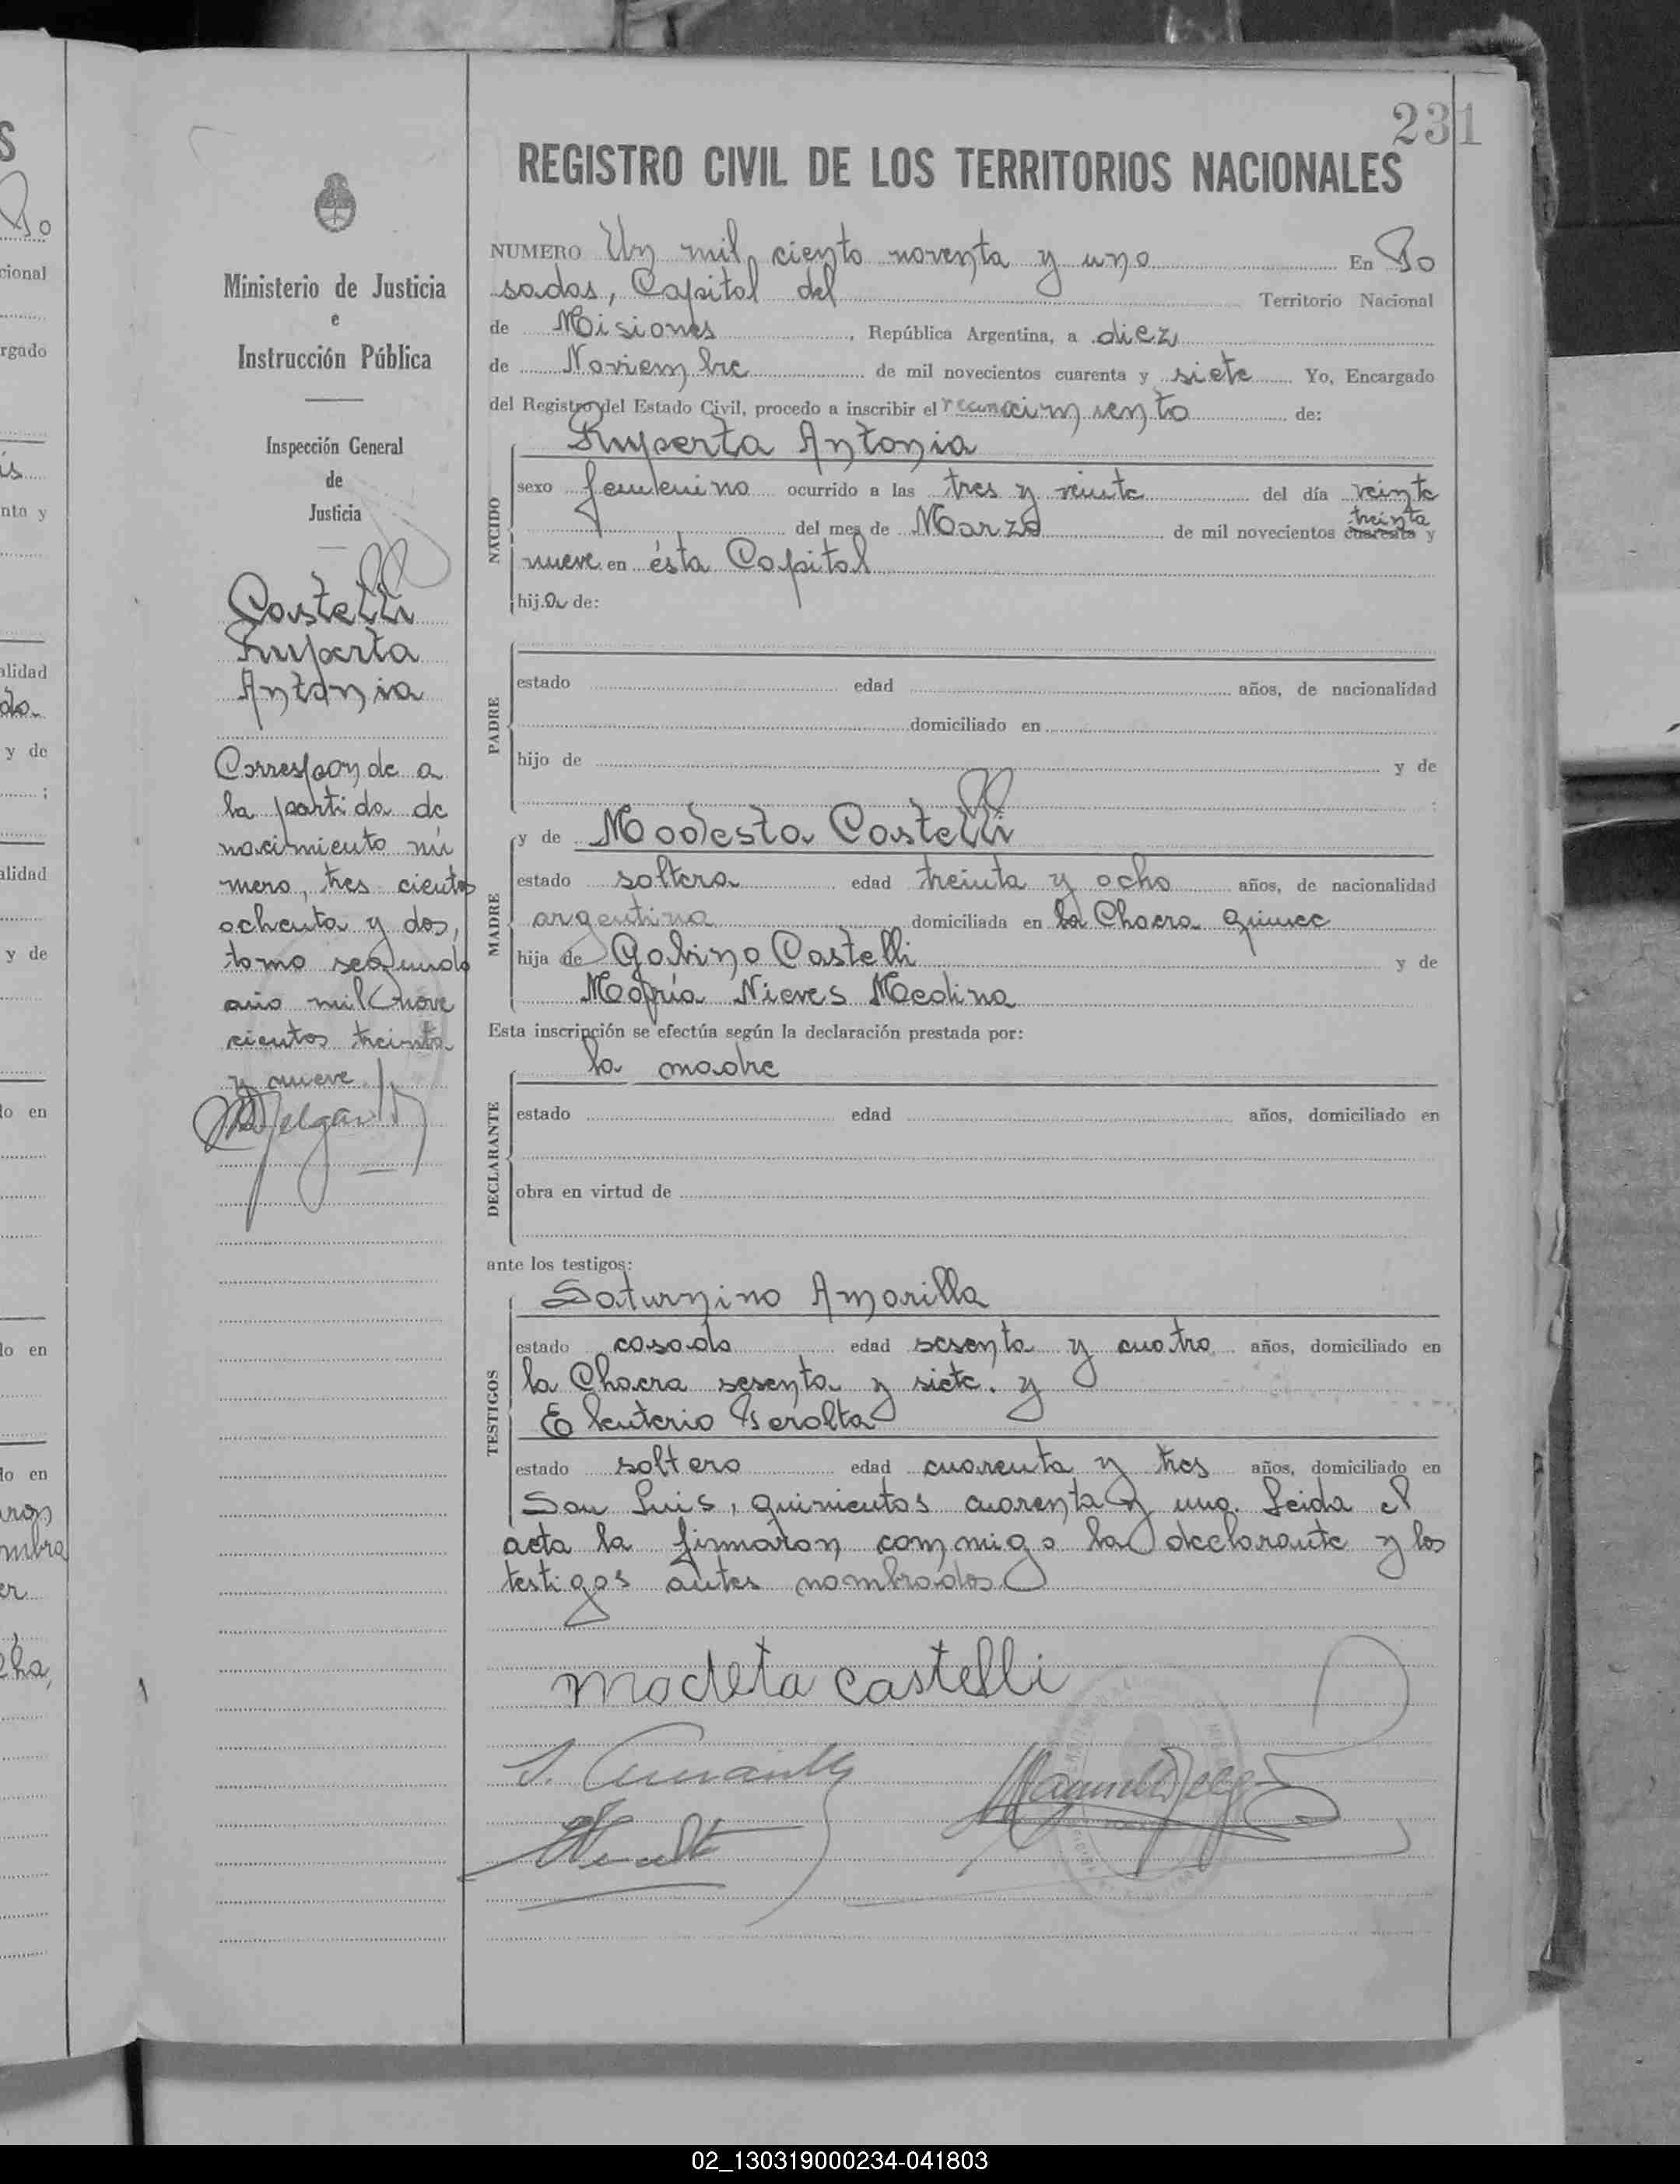 231
REGISTRO CIVIL DE LOS TERRITORIOS NACIONALES
Ministerio de Justicia
e
Instrucción Pública
Inspección General
de
Justicia
Castelli
Ruperta
Antonia
Corresponde a
la partida de
nacimiento nú
mero, tres cientos
ochenta y dos,
tomo segundo
año mil nove
cientos treinta
y nueve
NUMERO Un mil ciento noventa y uno En Po
sadas, Capital del Territorio Nacional
de Misiones, República Argentina, a diez
de Noviembre de mil novecientos cuarenta y siete Yo, Encargado
del Registro del Estado Civil, procedo a inscribir el reconocimiento de:
NACIDO
Ruperta Antonia
sexo femenino ocurrido a las tres y veinte del día veinte
treinta
del mes de Marzo de mil novecientos cuarenta y
nueve en ésta Capital
hija de:
PADRE
estado edad años, de nacionalidad
domiciliado en
hijo de y de
MADRE
y de Modesta Castelli
estado soltera edad treinta y ocho años, de nacionalidad
argentina domiciliada en la Chacra quince
hija de Gabino Castelli y de
María Nieves Medina
Esta inscripción se efectúa según la declaración prestada por:
DECLARANTE
la madre
estado edad años, domiciliado en
obra en virtud de
ante los testigos:
TESTIGOS
Saturnino Amarilla
estado casado edad sesenta y cuatro años, domiciliado en
la Chacra sesenta y siete. y
Eleuterio Peralta
estado soltero edad cuarenta y tres años, domiciliado en
San Luis, quinientos cuarenta y uno. Leida el
acta la firmaron conmigo la declarante y los
testigos antes nombrados
modeta castelli
02_130319000234-041803